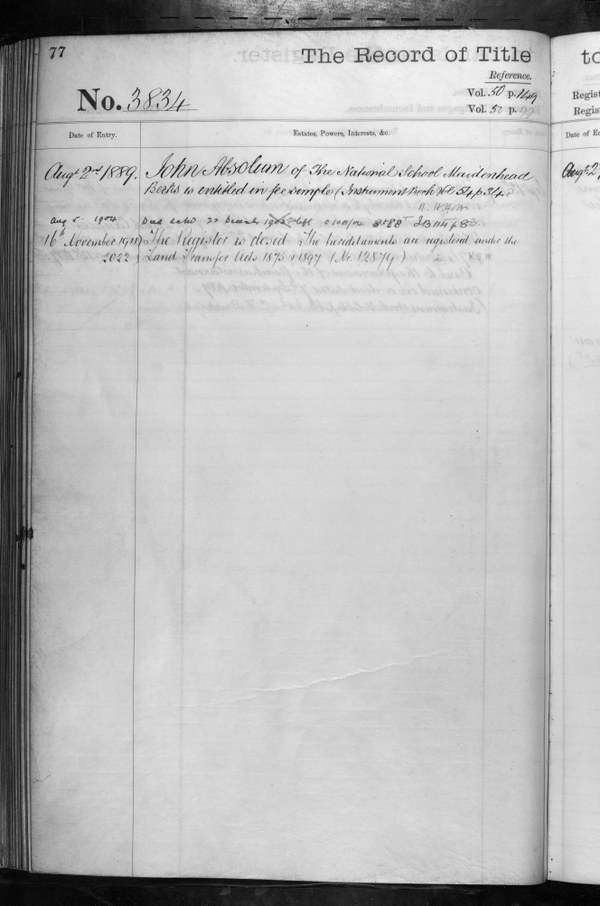 77
The Record of Title
Reference.
No. 3834
Vol. 50 p. 149
Vol. 50 p.
Date of Entry.
Estates, Powers, Interests, &c.
Augt 2nd 1889. John Absolum of The National School Maidenhead
Berks is entitled in fee simple (Instrument Book Vol 54 p 34.
Aug 5 1904
16th November 1911 The Register is closed The hereditaments are registered under the
Land Transfer Acts 1875 & 1897 (No. 12879)
to
Regist
Regist
Date of En
Augt 2